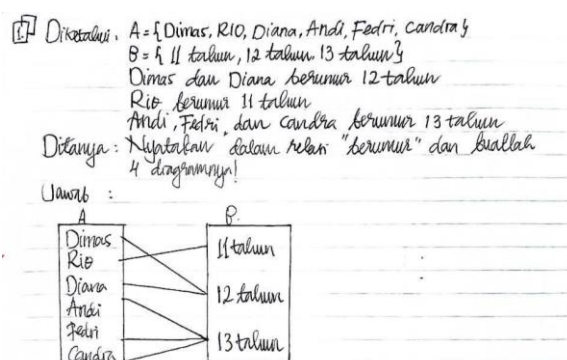 1. Diketahui : A = {Dimas, RIO, Diana, Andi, Fedri, Candra}
B = { 11 tahun, 12 tahun. 13 tahun}
Dimas dan Diana berumur 12 tahun
Rio berumur 11 tahun
Andi, Fedri, dan Candra berumur 13 tahun
Ditanya : Nyatakan dalam relasi "berumur" dan buatlah
4 diagramnya!
Jawab :
A B.
Dimas
Rio
Diana
Andi
Fedri
Candra
11 tahun
12 tahun
13 tahun